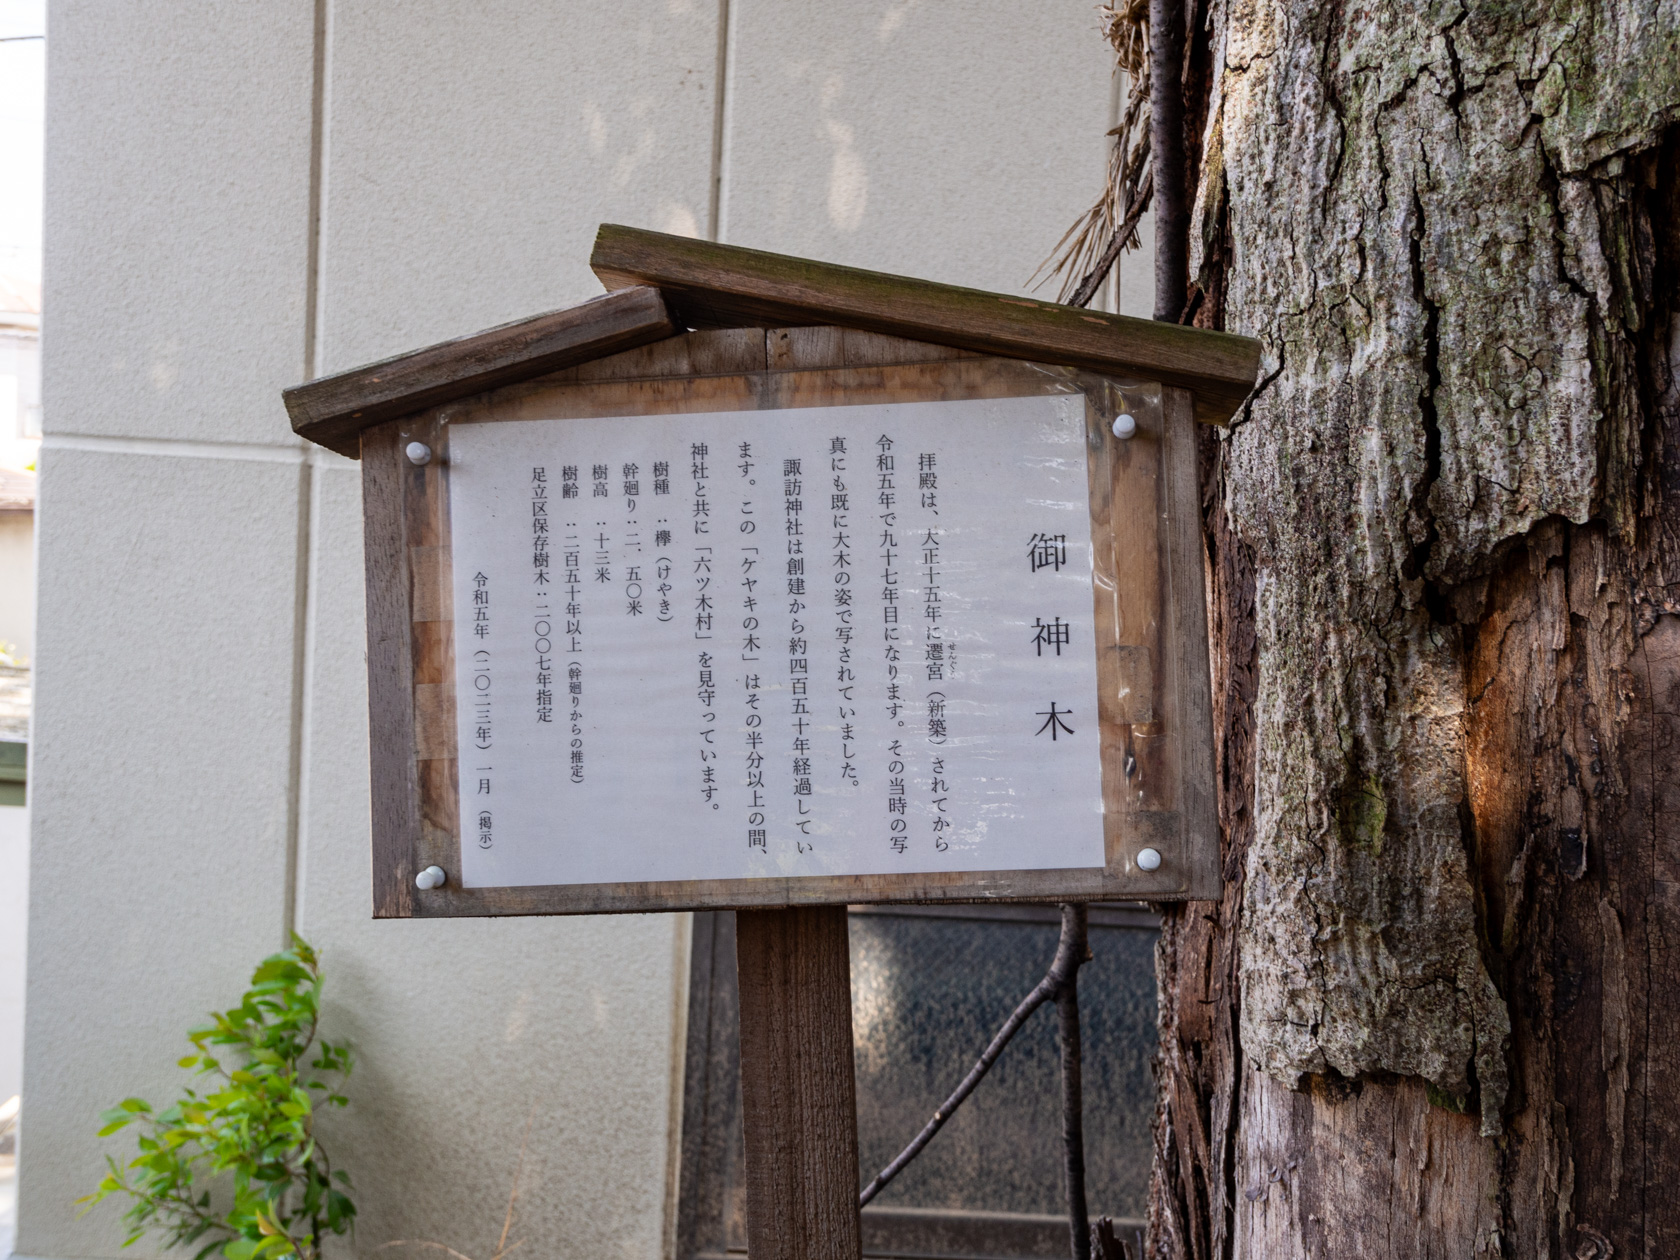 御神木
拝殿は、大正十五年に遷宮（新築）されてから
せんぐう
令和五年で九十七年目になります。その当時の写
真にも既に大木の姿で写されていました。
諏訪神社は創建から約四百五十年経過してい
ます。この「ケヤキの木」はその半分以上の間、
神社と共に「六ツ木村」を見守っています。
樹種　：欅（けやき）
幹廻り：二、五〇米
樹高　：十三米
樹齢　：二百五十年以上（幹廻りからの推定）
足立区保存樹木：二〇〇七年指定
令和五年（二〇二三年）一月（掲示）